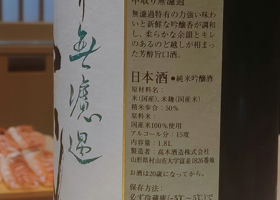 中取り無濾過
無濾過特有の力強い味わ
いと新鮮な吟醸香が調和
し、柔らかな余韻とキレ
のあるのど越しが相まっ
た芳醇旨口酒。
日本酒●純米吟醸酒
原材料名:
米(国産)、米麹(国産)
精米歩合:50%
原料米:
国産米100%使用
アルコール分:15度
内容量:1.8L
製造者:高木酒造株式会社
山形県村山市大字富並1826番地
お酒は20歳になってから。
保存方法:
必ず冷蔵庫(-5℃~5℃)で
吾濾過